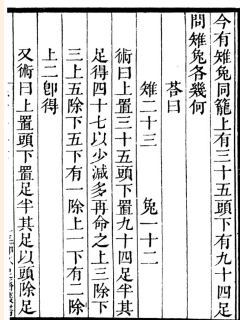 今有雉兔同籠上有三十五頭下有九十四足
問雉兔各幾何
荅曰
雉二十三 兔一十二
術曰上置三十五頭下置九十四足半其
足得四十七以少減多再命之上三除下
三上五除下五下有一除上一下有二除
上二卽得
又術曰上置頭下置足半其足以頭除足